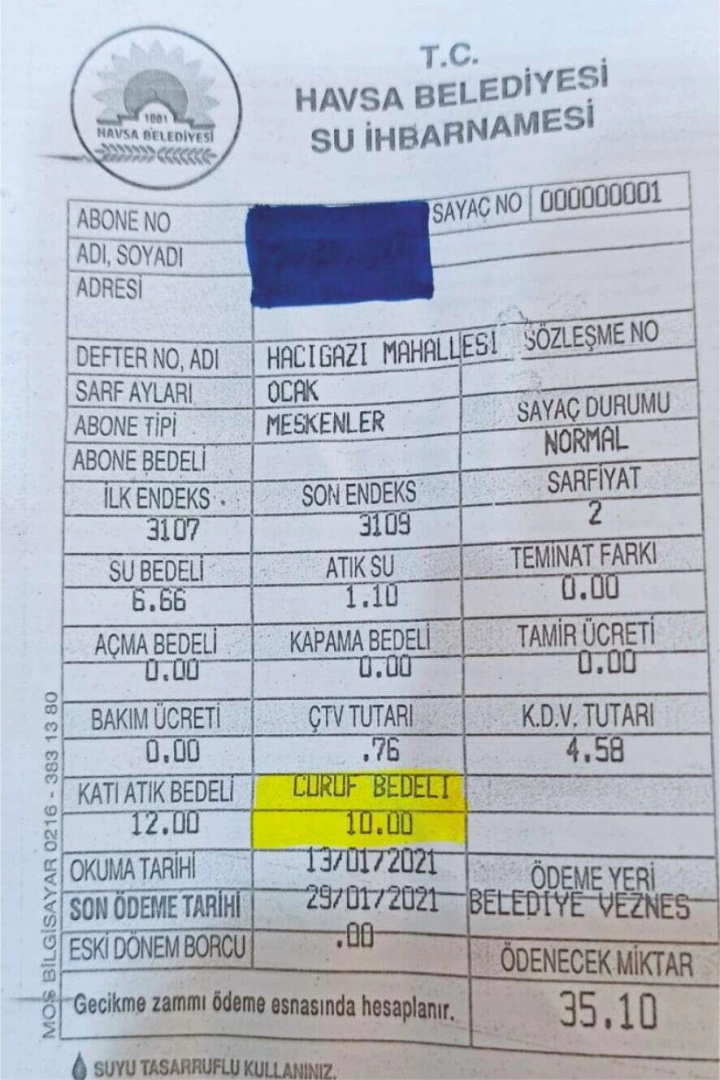 T.C.
HAVSA BELEDİYESİ
SU İHBARNAMESİ
1881
HAVSA BELEDİYESİ
ABONE NO
SAYAÇ NO 000000001
ADI, SOYADI
ADRESİ
DEFTER NO, ADI HACIGAZI MAHALLESI SÖZLEŞME NO
SARF AYLARI OCAK
ABONE TİPİ MESKENLER SAYAÇ DURUMU
ABONE BEDELİ NORMAL
İLK ENDEKS SON ENDEKS SARFİYAT
3107 3109 2
SU BEDELİ ATIK SU TEMİNAT FARKI
6.66 1.10 0.00
AÇMA BEDELİ KAPAMA BEDELİ TAMİR ÜCRETİ
0.00 0.00 0.00
BAKIM ÜCRETİ ÇTV TUTARI K.D.V. TUTARI
0.00 .76 4.58
KATI ATIK BEDELİ CURUF BEDELI
12.00 10.00
OKUMA TARİHİ 13/01/2021 ÖDEME YERİ
SON ÖDEME TARİHİ 29/01/2021 BELEDIYE VEZNES
ESKİ DÖNEM BORCU .00 ÖDENECEK MİKTAR
Gecikme zammı ödeme esnasında hesaplanır. 35.10
SUYU TASARRUFLU KULLANINIZ.
MOS BİLGİSAYAR 0216 - 383 13 80